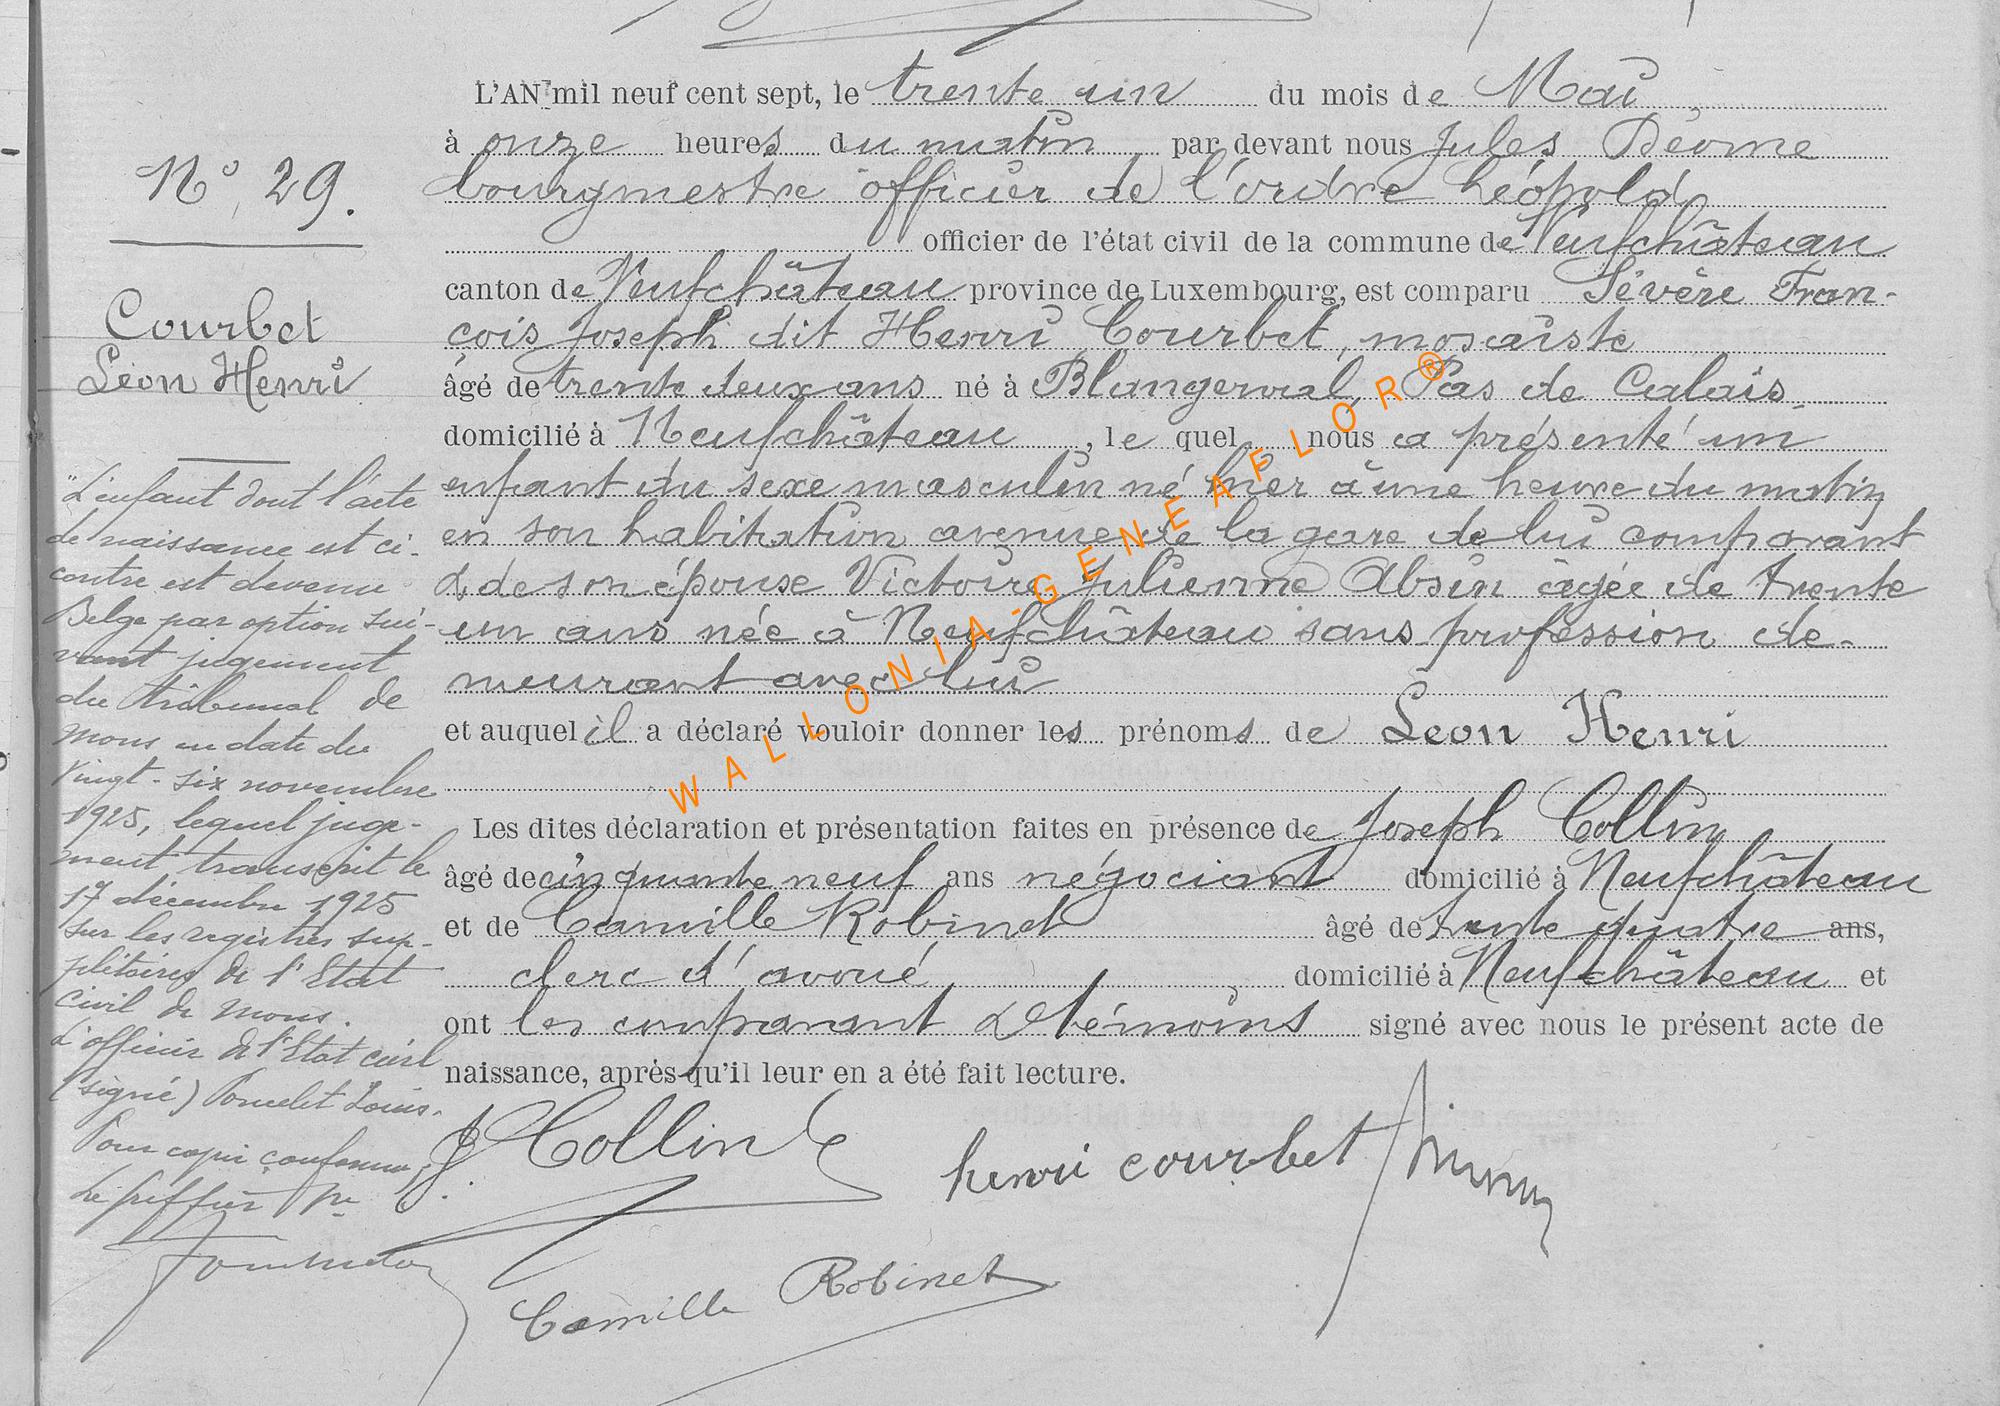 N° 29.
Courbet
Léon Henri
"L'enfant dont l'acte
de naissance est ci-
contre est devenu
Belge par option sui-
vant jugement
du tribunal de
Mons en date du
vingt-six novembre
1925, lequel juge-
ment transcrit le
17 décembre 1925
sur les registres sup-
plétoires de l'Etat
Civil de Mons.
L'officier de l'Etat civil
(signé) Poncelet Louis.
Pour copie conforme,
Le greffier
L'AN mil neuf cent sept, le trente un du mois de Mai
à onze heures du matin par devant nous Jules Déome
bourgmestre officier de l'ordre Léopold
officier de l'état civil de la commune de Neufchâteau
canton de Neufchâteau province de Luxembourg, est comparu Sévère Fran-
çois Joseph dit Henri Courbet, mosaïste
âgé de trente deux ans né à Blangerval, Pas de Calais
domicilié à Neufchâteau, le quel nous a présenté un
enfant du sexe masculin né hier à une heure du matin
en son habitation avenue de la gare de lui comparant
& de son épouse Victoire Julienne Absin âgée de trente
un ans née à Neufchâteau sans profession de-
meurant avec lui
et auquel il a déclaré vouloir donner les prénoms de Léon Henri
Les dites déclaration et présentation faites en présence de Joseph Collin
âgé de cinquante neuf ans négociant domicilié à Neufchâteau
et de Camille Robinet âgé de trente quatre ans,
clerc d'avoué domicilié à Neufchâteau et
ont les comparant & témoins signé avec nous le présent acte de
naissance, après qu'il leur en a été fait lecture.
J Collin
henri courbet
Camille Robinet
WALLONIA-GENEAFLOR®